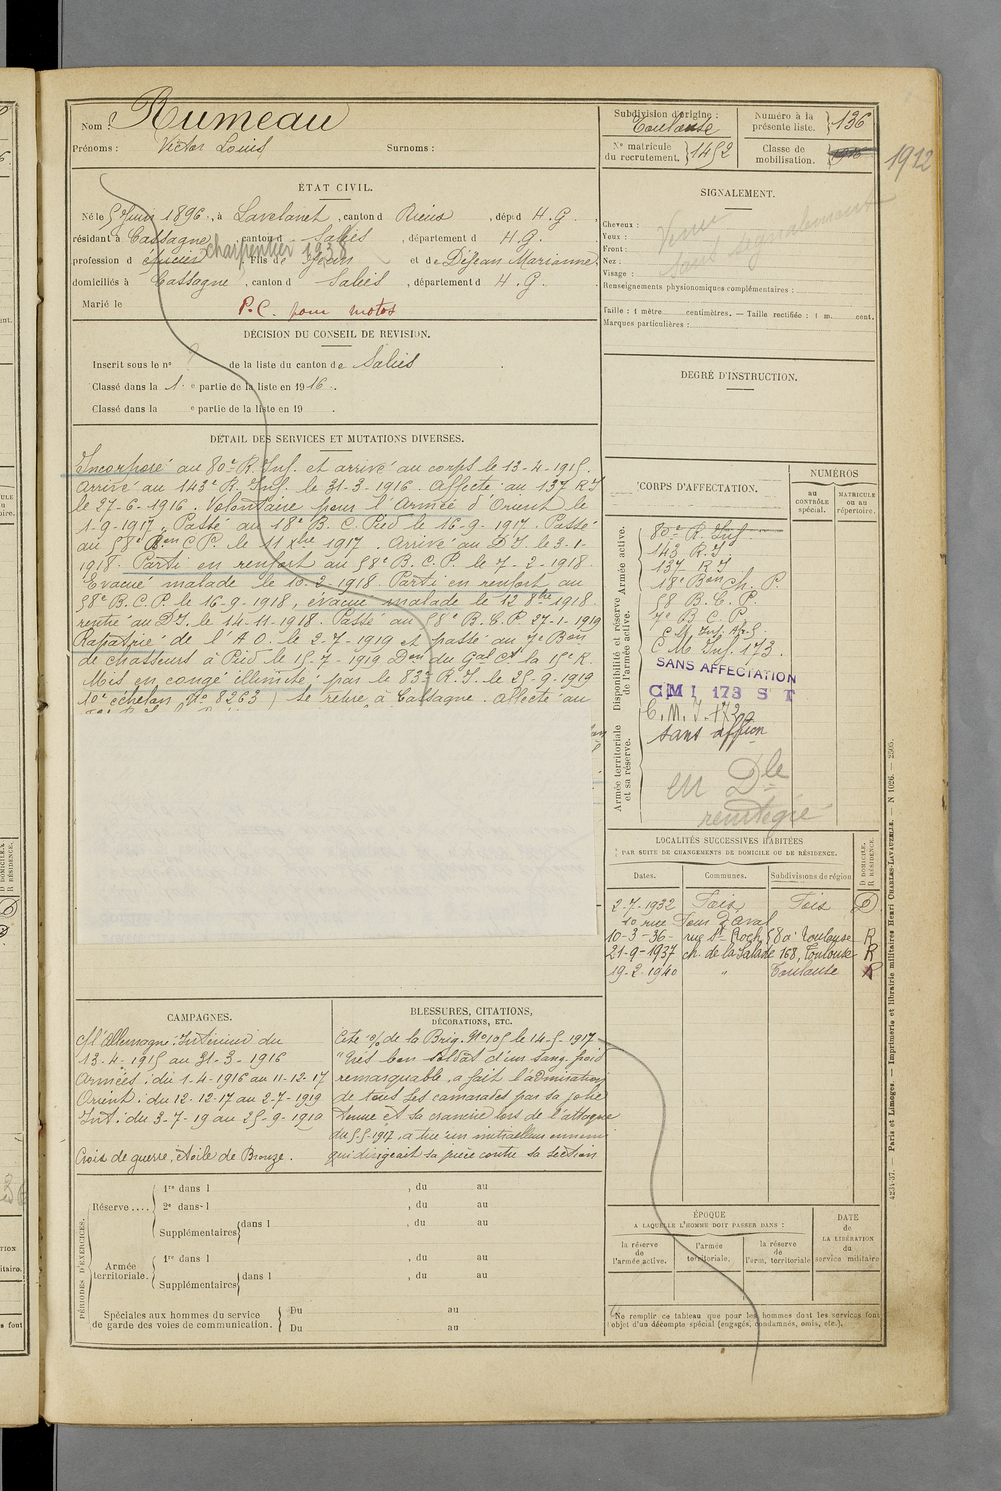 Nom : Rumeau
Prénoms : Victor Louis Surnoms :
Subdivision d'origine :
Toulouse
Nº matricule du recrutement. 1452
Numéro à la présente liste. 136
Classe de mobilisation. 1916 1912
ÉTAT CIVIL.
Né le 5 Juin 1896, à Lavelanet, canton d Rieus, dép d H. G.
résidant à Cassagne, canton d Saliès, département d H. G.
profession d épicier charpentier 1938, Fils de Jean et de Dejean Marianne
domiciliés à Cassagne, canton d Saliès, département d H. G.
Marié le
P. C. pour motos
DÉCISION DU CONSEIL DE REVISION.
Inscrit sous le nº de la liste du canton de Saliès
Classé dans la 1 e partie de la liste en 1916.
Classé dans la e partie de la liste en 19 .
DÉTAIL DES SERVICES ET MUTATIONS DIVERSES.
Incorporé au 80e R. Inf. et arrivé au corps le 13-4-1915.
Arrivé au 143e R. Inf. le 31-3-1916. Affecté au 137 R I
le 27-6-1916. Volontaire pour l'Armée d'Orient le
1-9-1917. Passé au 18e B. C. Pied le 16-9-1917. Passé
au 58e Bon C P. le 11 xbre 1917. Arrivé au D I. le 3-1-
1918. Parti en renfort au 58e B. C. P. le 7-2-1918.
Evacué malade le 10-2-1918. Parti en renfort au
58e B. C. P. le 16-9-1918, évacué malade le 12 8bre 1918.
rentré au D I. le 14-11-1918. Passé au 58e B. C. P. 27-1-1919
Rapatrié de l'A O. le 2-7-1919 et passé au 7e Bon
de chasseurs à Pied le 15-7-1919 Don du Gal Ct la 15e R.
Mis en congé illimité par le 83e R. I. le 25-9-1919
10e échelon Nº 8263) se retire à Cassagne. Affecté au
SIGNALEMENT.
Cheveux :
Yeux :
Front :
Nez :
Visage :
Venu sans signalement
Renseignements physionomiques complémentaires :
Taille : 1 mètre centimètres. — Taille rectifiée : 1 m. cent.
Marques particulières :
DEGRÉ D'INSTRUCTION.
CORPS D'AFFECTATION.
NUMÉROS
au CONTRÔLE spécial.
MATRICULE ou au répertoire.
Armée active.
Disponibilité et réserve de l'armée active.
Armée territoriale et sa réserve.
80e R. Inf
143 R. I.
137 R I
18e Bon Ch. P.
58 B. C. P.
7e B C P.
C M Inf. 173.
SANS AFFECTATION
CMI 173 S T
C. M. I. 172
sans affion
en Dle
réintégré
LOCALITÉS SUCCESSIVES HABITÉES
PAR SUITE DE CHANGEMENTS DE DOMICILE OU DE RÉSIDENCE.
D DOMICILE.
R RÉSIDENCE.
Dates. Communes. Subdivisions de région
2-7-1932 Foix Foix D
10 rue Four d'aval
10-3-36- rue St Roch, 58 a Toulouse R
21-9-1937 ch. de la Salade 168, Toulouse R
19-2-1940 " Toulouse R
CAMPAGNES.
Cl'Allemagne : Intérieur du
13-4-1915 au 31-3-1916
Armées : du 1-4-1916 au 11-12-17
Orient : du 12-12-17 au 2-7-1919
Int. du 3-7-19 au 25-9-1919
Croix de guerre, étoile de Bronze.
BLESSURES, CITATIONS,
DÉCORATIONS, ETC.
Cité o/ de la Brig. Nº 105 le 14-5-1917
"Très bon soldat d'un sang froid
remarquable, a fait l'admiration
de tous ses camarades par sa jolie
tenue et sa cranerie lors de l'attaque
du 5-5-1917, a tué un mitrailleur ennemi
qui dirigeait sa pièce contre sa section
PÉRIODES D'EXERCICES.
Réserve ....
1re dans l , du au
2e dans l , du au
Supplémentaires dans l , du au
Armée territoriale.
1re dans l , du au
Supplémentaires dans l , du au
Spéciales aux hommes du service de garde des voies de communication.
Du au
Du au
ÉPOQUE
A LAQUELLE L'HOMME DOIT PASSER DANS :
la réserve de l'armée active.
l'armée territoriale.
la réserve de l'arm. territoriale
DATE de LA LIBÉRATION du service militaire
Ne remplir ce tableau que pour les hommes dont les services font
objet d'un décompte spécial (engagés, condamnés, omis, etc.).
4234-37. — Paris et Limoges. — Imprimerie et librairie militaires Henri CHARLES-LAVAUZELLE. — N 1026. — 2505.